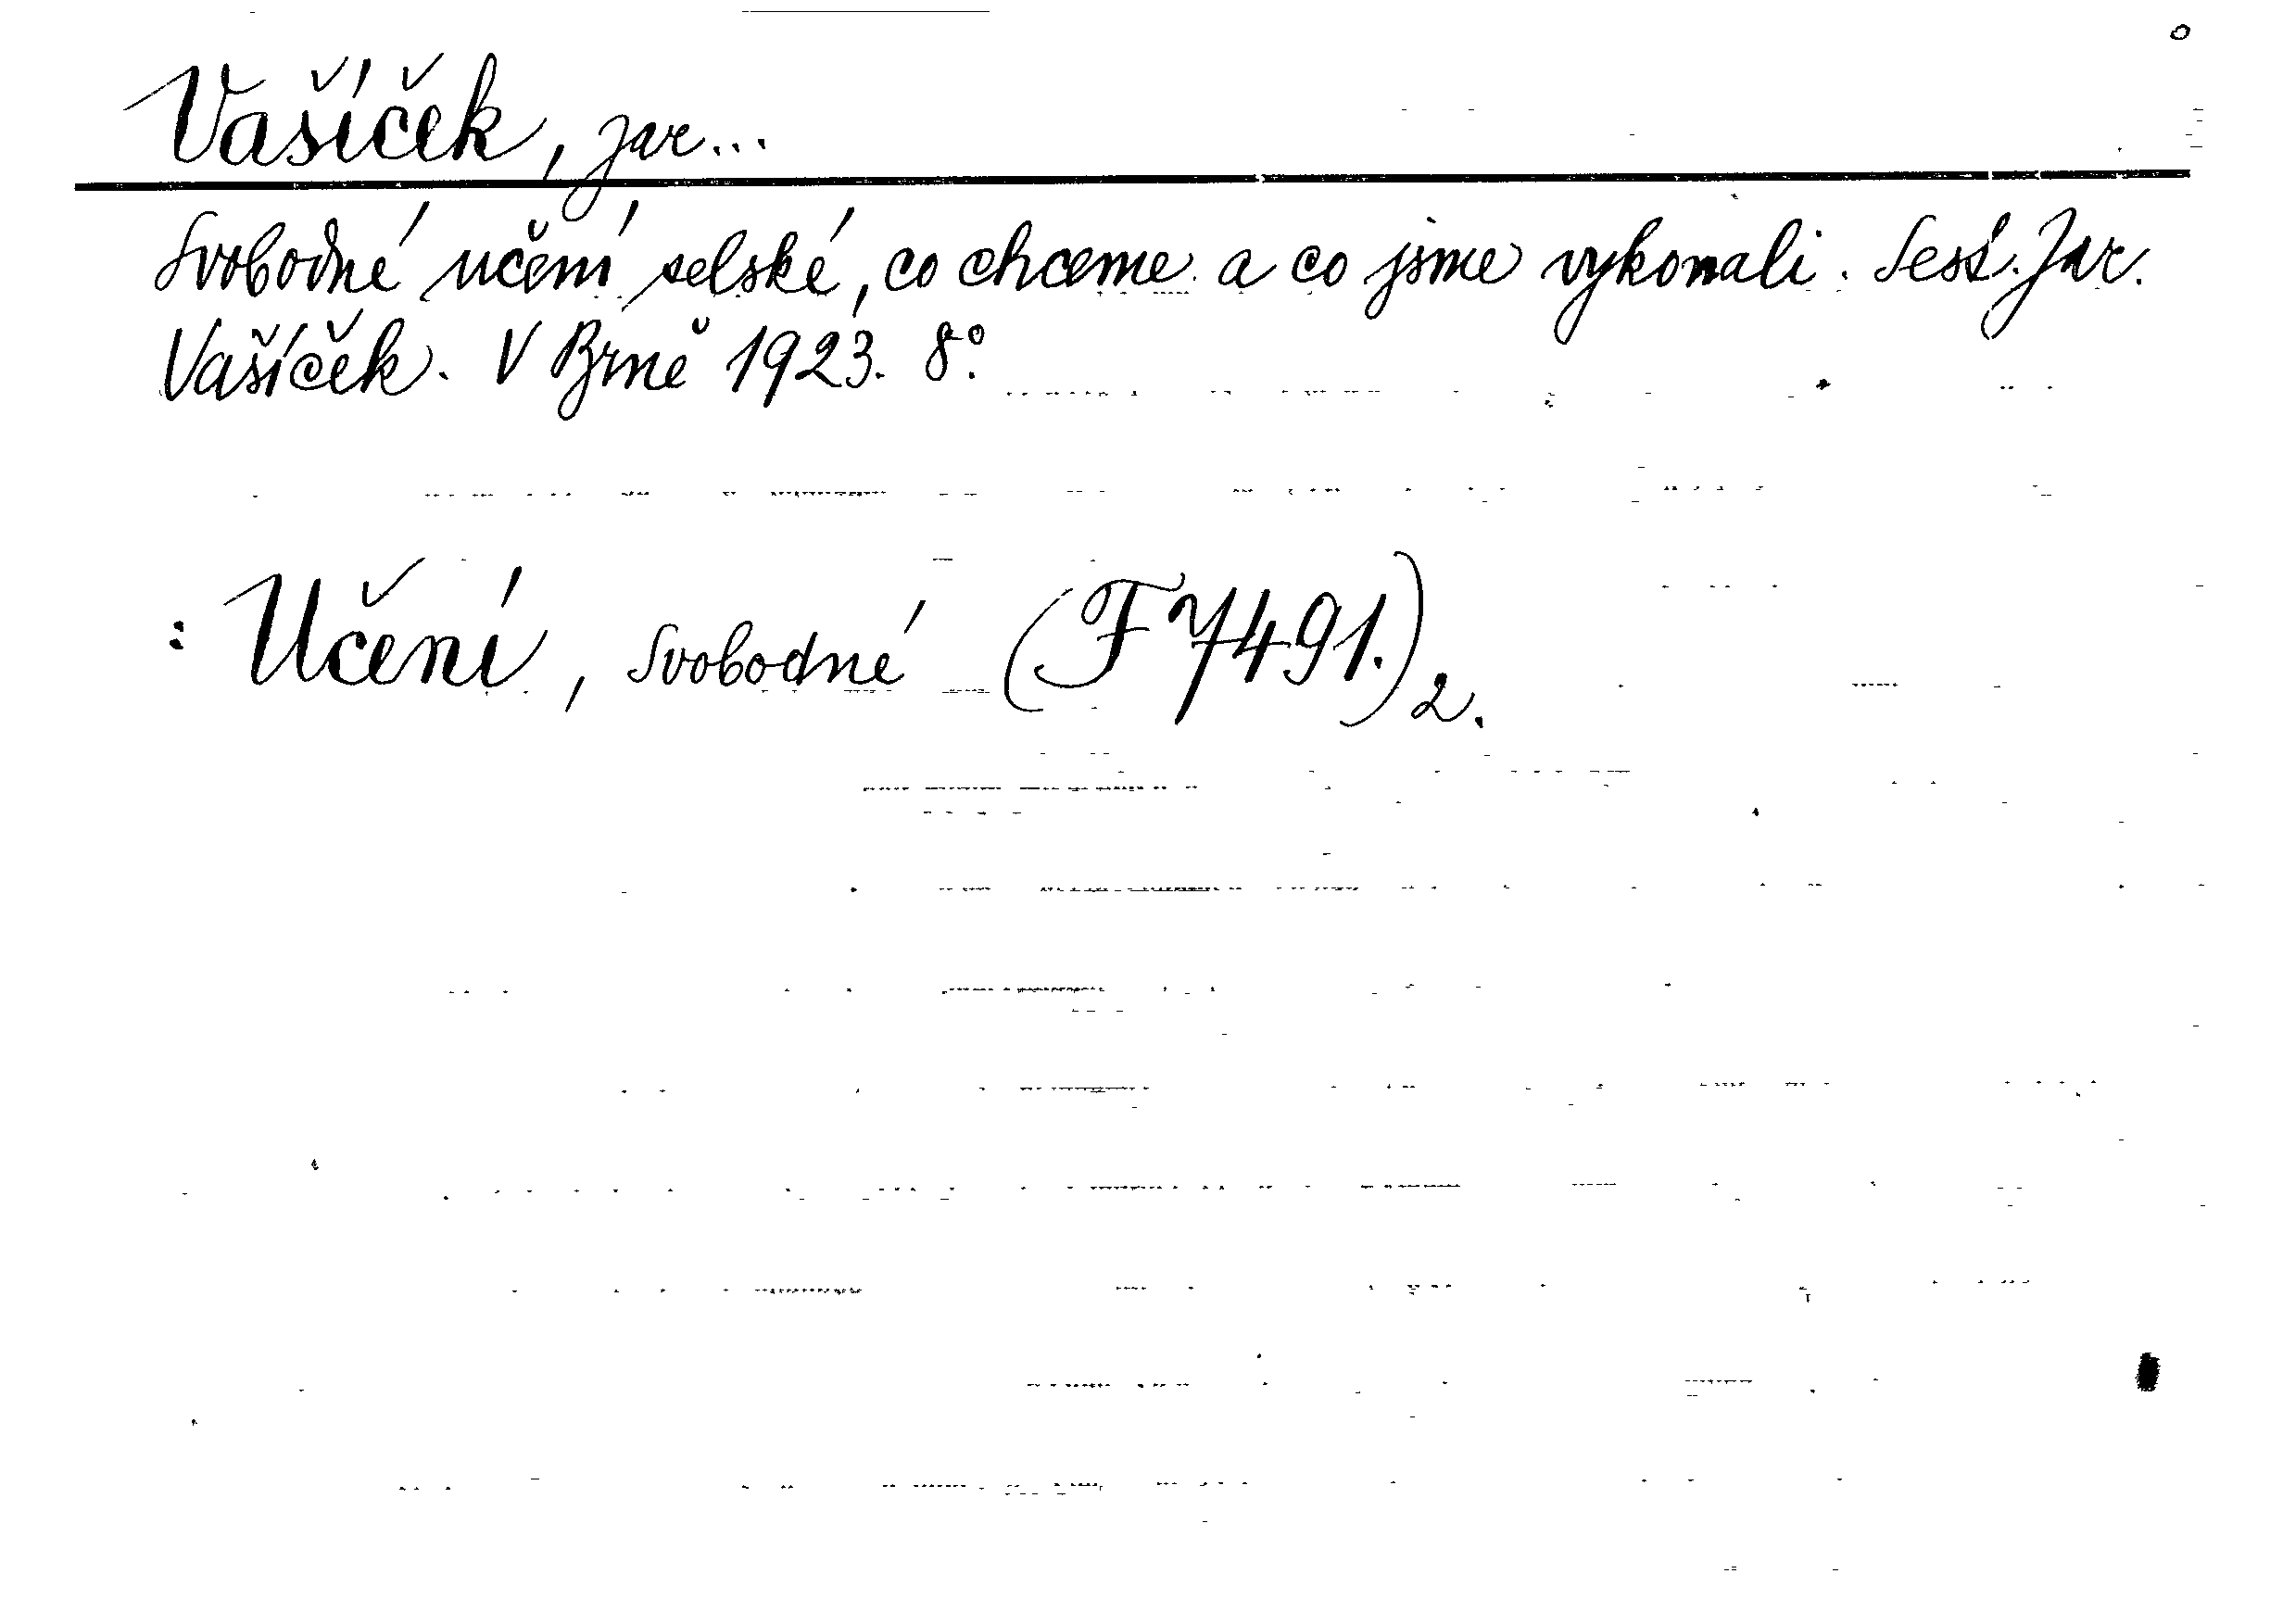 Vašíček, Jar...
Svobodné učení selské, co chceme a co jsme vykonali. Sest. Jar.
Vašíček. V Brně 1923. 8°.
: Učení, Svobodné (F 7491.)2.